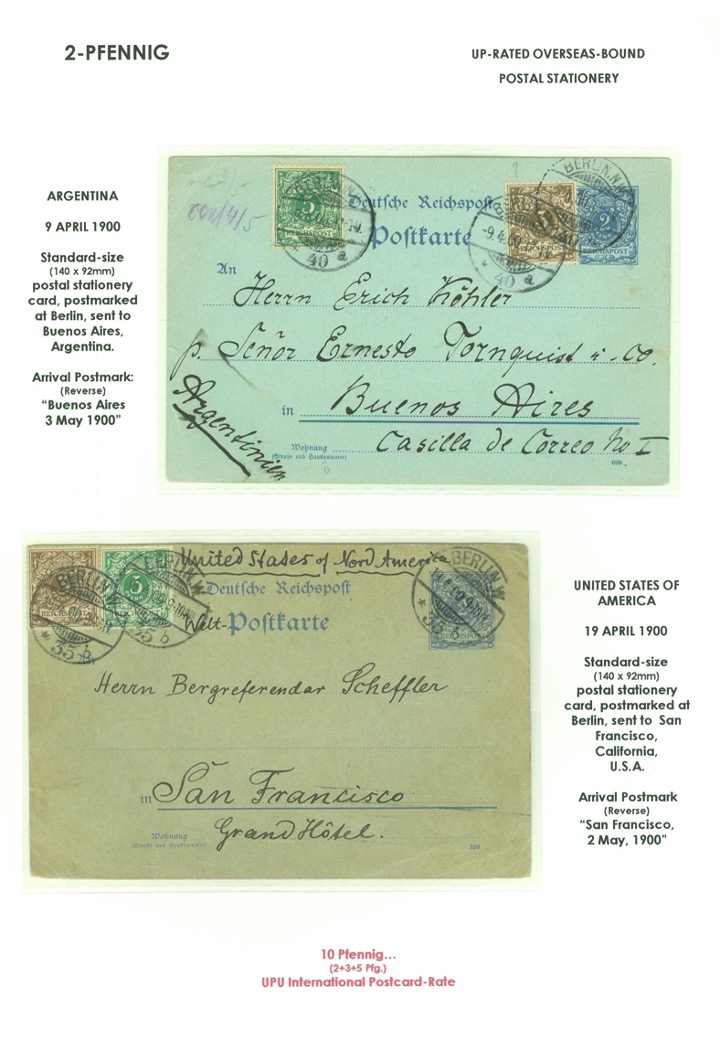 2-PFENNIG
UP-RATED OVERSEAS-BOUND
POSTAL STATIONERY
ARGENTINA
9 APRIL 1900
Standard-size
(140 x 92mm)
postal stationery
card, postmarked
at Berlin, sent to
Buenos Aires,
Argentina.
Arrival Postmark:
(Reverse)
“Buenos Aires
3 May 1900”
BERLIN.N.W.
5
REICHSPOST
40 a
BERLIN
-9.4.
* 40 a
3
REICHSPOST
BERLIN.N.W.
2
Deutsche Reichspost
Postkarte
An
Herrn Erich Köhler
p. Señor Ernesto Tornquist u. Co.
Argentinien
in Buenos Aires
Wohnung
(Straße und Hausnummer)
Casilla de Correo No I
699.
REICHSPOST
BERLIN.W.
* 35 b
5
REICHSPOST
BERLIN.W.
35 b
United States of Nord America
Deutsche Reichspost
Welt-Postkarte
BERLIN.W.
REICHSPOST
Herrn Bergreferendar Scheffler
in San Francisco
Wohnung
(Straße und Hausnummer)
Grand Hôtel.
UNITED STATES OF
AMERICA
19 APRIL 1900
Standard-size
(140 x 92mm)
postal stationery
card, postmarked at
Berlin, sent to San
Francisco,
California,
U.S.A.
Arrival Postmark
(Reverse)
“San Francisco,
2 May, 1900”
10 Pfennig...
(2+3+5 Pfg.)
UPU International Postcard-Rate